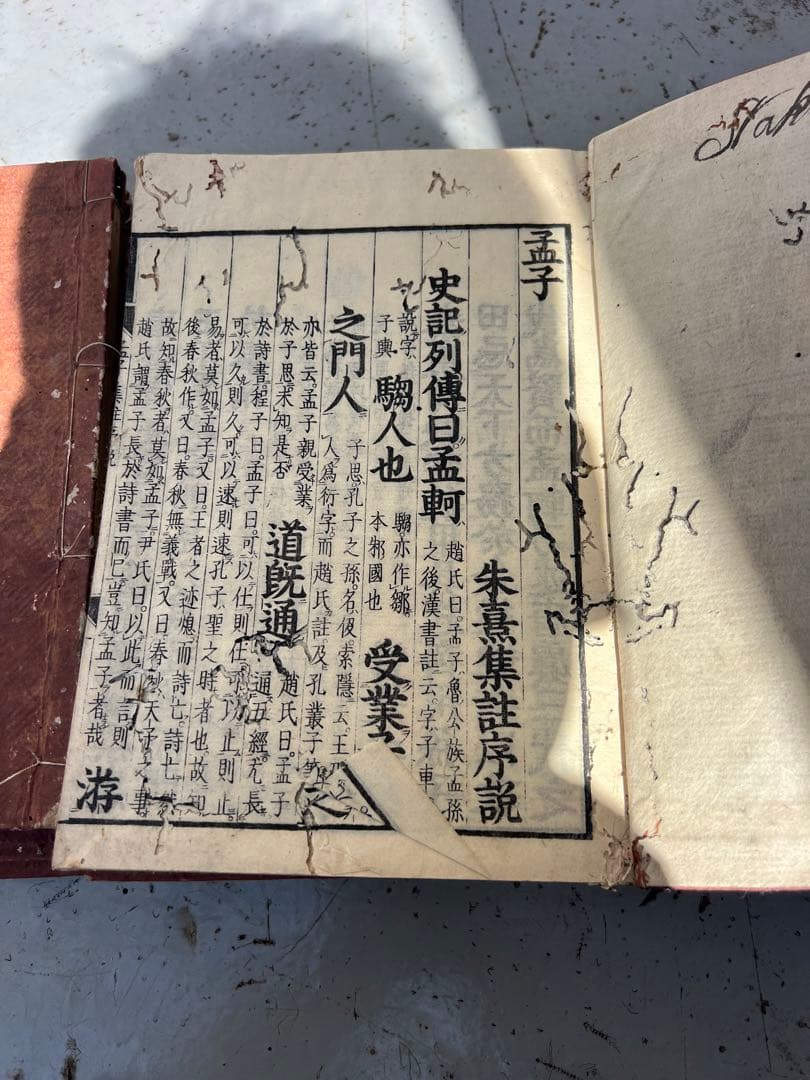 孟子
朱熹集註序説
史記列傳曰孟軻
趙氏曰孟子魯公族孟孫
之後漢書註云字子車
説字
子輿
騶人也
騶亦作鄒
本邾國也
受業子
之門人
子思孔子之孫名伋索隱云王
人爲衍字而趙氏註及孔叢子等
亦皆云孟子親受業
於子思未知是否
道既通
趙氏曰孟子
通五經尤長
於詩書程子曰孟子曰可以仕則仕可以止則止
可以久則久可以速則速孔子聖之時者也故知
易者莫如孟子又曰王者之迹熄而詩亡詩亡然
後春秋作又曰春秋無義戰又曰春秋天子之事
故知春秋者莫如孟子尹氏曰以此而言則
趙氏謂孟子長於詩書而已豈知孟子者哉
游